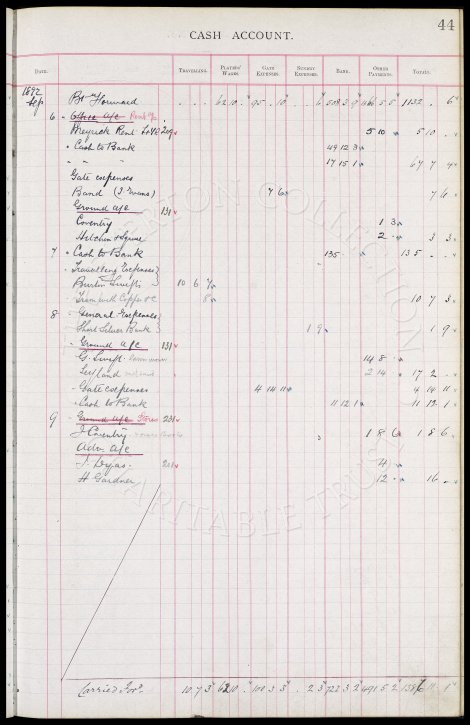 44
CASH ACCOUNT.
DATE. TRAVELLING. PLAYERS' WAGES. GATE EXPENSES. SUNDRY EXPENSES. BANK. OTHER PAYMENTS. TOTALS.
1892
Sep Bt Forward 62 10 95 . 10 6 508 3 9 466 5 5 1132 . 6
6 Office a/c Rent
Rent 5 10 5 10
Cash to Bank 49 12 3
" " " 17 15 1 67 7 4
Gate expenses
Band (J. Evans) 7 6 7 6
Ground a/c 131
Coventry 1 3
2 3 3
7 Cash to Bank 135 135
Travelling Expenses
Burton Swifts 10 6 7
8 10 7 3
8 General Expenses
Bank 1 9 1 9
Ground a/c 131
G. Swift 14 8
2 14 17 2
Gate expenses 4 14 11 4 14 11
Cash to Bank 11 12 1 11 12 1
9 Ground a/c Stores 231
J Coventry 1 8 6 1 8 6
Adv. a/c
J. Dyas 4
H Gardner 12 16
Carried For. 10 7 3 62 10 100 3 3 2 3 722 3 2 491 5 2
CHARITABLE TRUST
COLLECTION